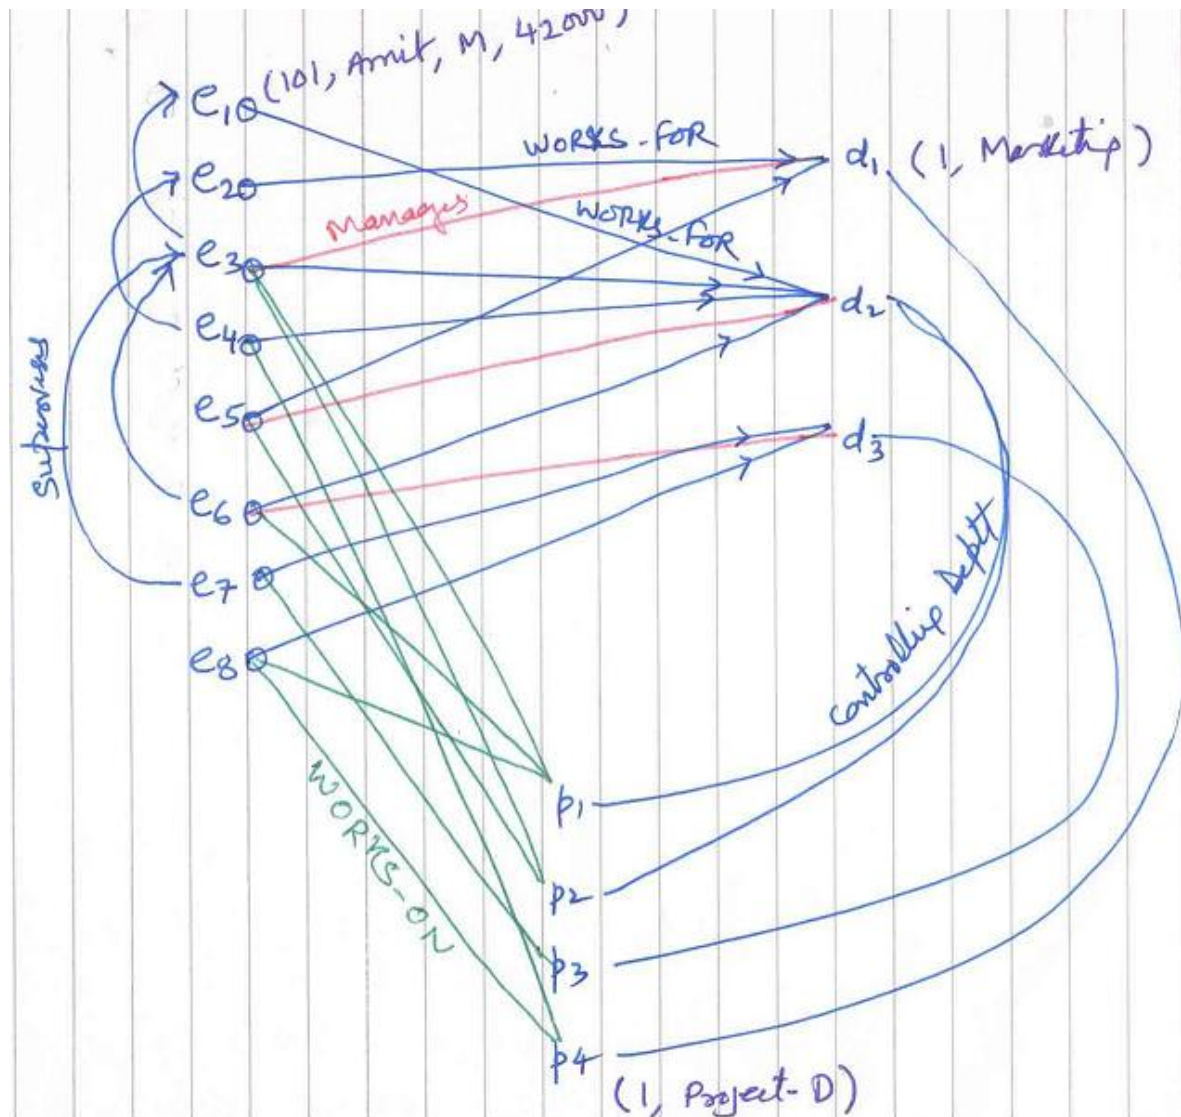 e1 (101, Amit, M, 42000,
e2
e3
e4
e5
e6
e7
e8
WORKS-FOR
Manages
WORKS-FOR
d1 (1, Marketing)
d2
d3
Supervises
Controlling Deptt
WORKS-ON
p1
p2
p3
p4
(1, Project-D)